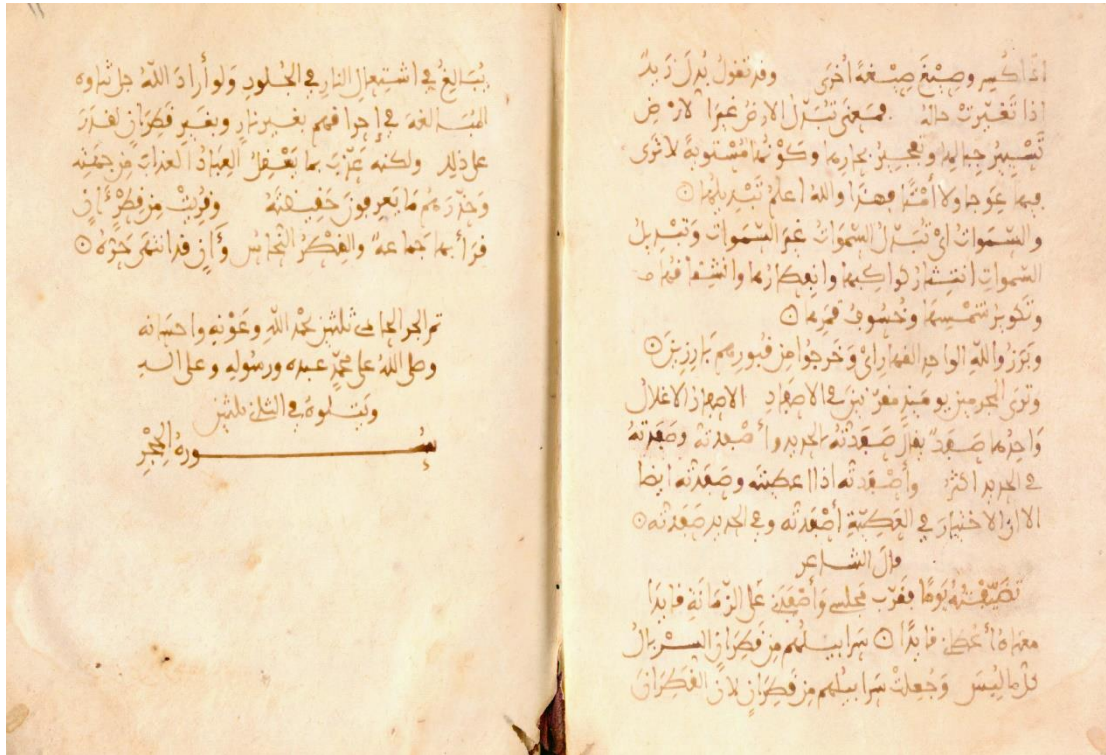 اذا كُسِر وصِيغَ صِيغَةً أخرى وقد تقول بُدِّل زَيدٌ
اذا تَغيّرتْ حالُهُ فمعنى تُبَدَّلُ الارضُ غيرَ الارْضِ
تَسْيِيرُ جبالها وتفجيرُ بحارها وكَوْنُها مُسْتَوِيةً لا تَرى
فيها عِوَجا ولا أَمْتًا فهذا والله اعلم تَبْدِيلُها
والسّموات اي تُبَدّلُ السّموات غير السّموات وتَبْديلُ
السموات انتثار كواكبها وانفطارها وانشقاقها
وتكوير شمسها وخسوف قمرها
وبَرَزوا للّه الواحد القهار اي وَخَرجوا من قبورهم بَارِزِينَ
وترى المجرمين يومئذ مقرّنين في الاصفاد الاصفاد الاغلال
واحدها صَفَدٌ يقال صَفَدْتُهُ بالحديد وأصْفدته وصَفَدْتُهُ
في الحديد اكثر وأَصْفَدته اذا اعطيته وصَفَدته ايضا
الا ان الاختيار في العَطِيّةِ أصْفَدْته وفي الحديد صَفَدْته
قال الشاعر
تَضَيّفْتُهُ يَومًا فقرّب مجلسي وأصْفَدَني على الزّمَانَةِ قايِدَا
معناه أعْطاني قايدًا سرابيلُهم من قَطِرَانٍ السربال
كل ما لُبِسَ وجُعِلتْ سَرابيلُهم من قَطِرانٍ لانّ القَطِرَانَ
يُبَالِغُ في اشتِعالِ النارِ في الجُلودِ ولو أرادَ اللّهُ جل ثناوه
المُبَالغة في إحراقهم بغير نارٍ وبغير قَطِرانٍ لقَدَرَ
على ذلك ولكنه عَذّبَ بما يَعْقِلُ العِبَادُ العذابَ مِن جِهَتِه
وحَذّرَهُم مَا يَعرفونَ حَقِيقَتَهُ وقُرِئَتْ مِن قِطْرٍ ءَانٍ
قَرَأ بها جماعة والقِطْرُ النُّحاسُ وءَانٍ قد انتهى حَرُّهُ
تم الجزء الحادي ثلثين بحمد اللّهِ وعَوْنِهِ واحسَانه
وصلى اللّهُ على محمّدٍ عبدِه ورسُولِهِ وعلى الِه
ويتلوهُ في الثاني ثلثين
سُورةُ الحِجْرِ